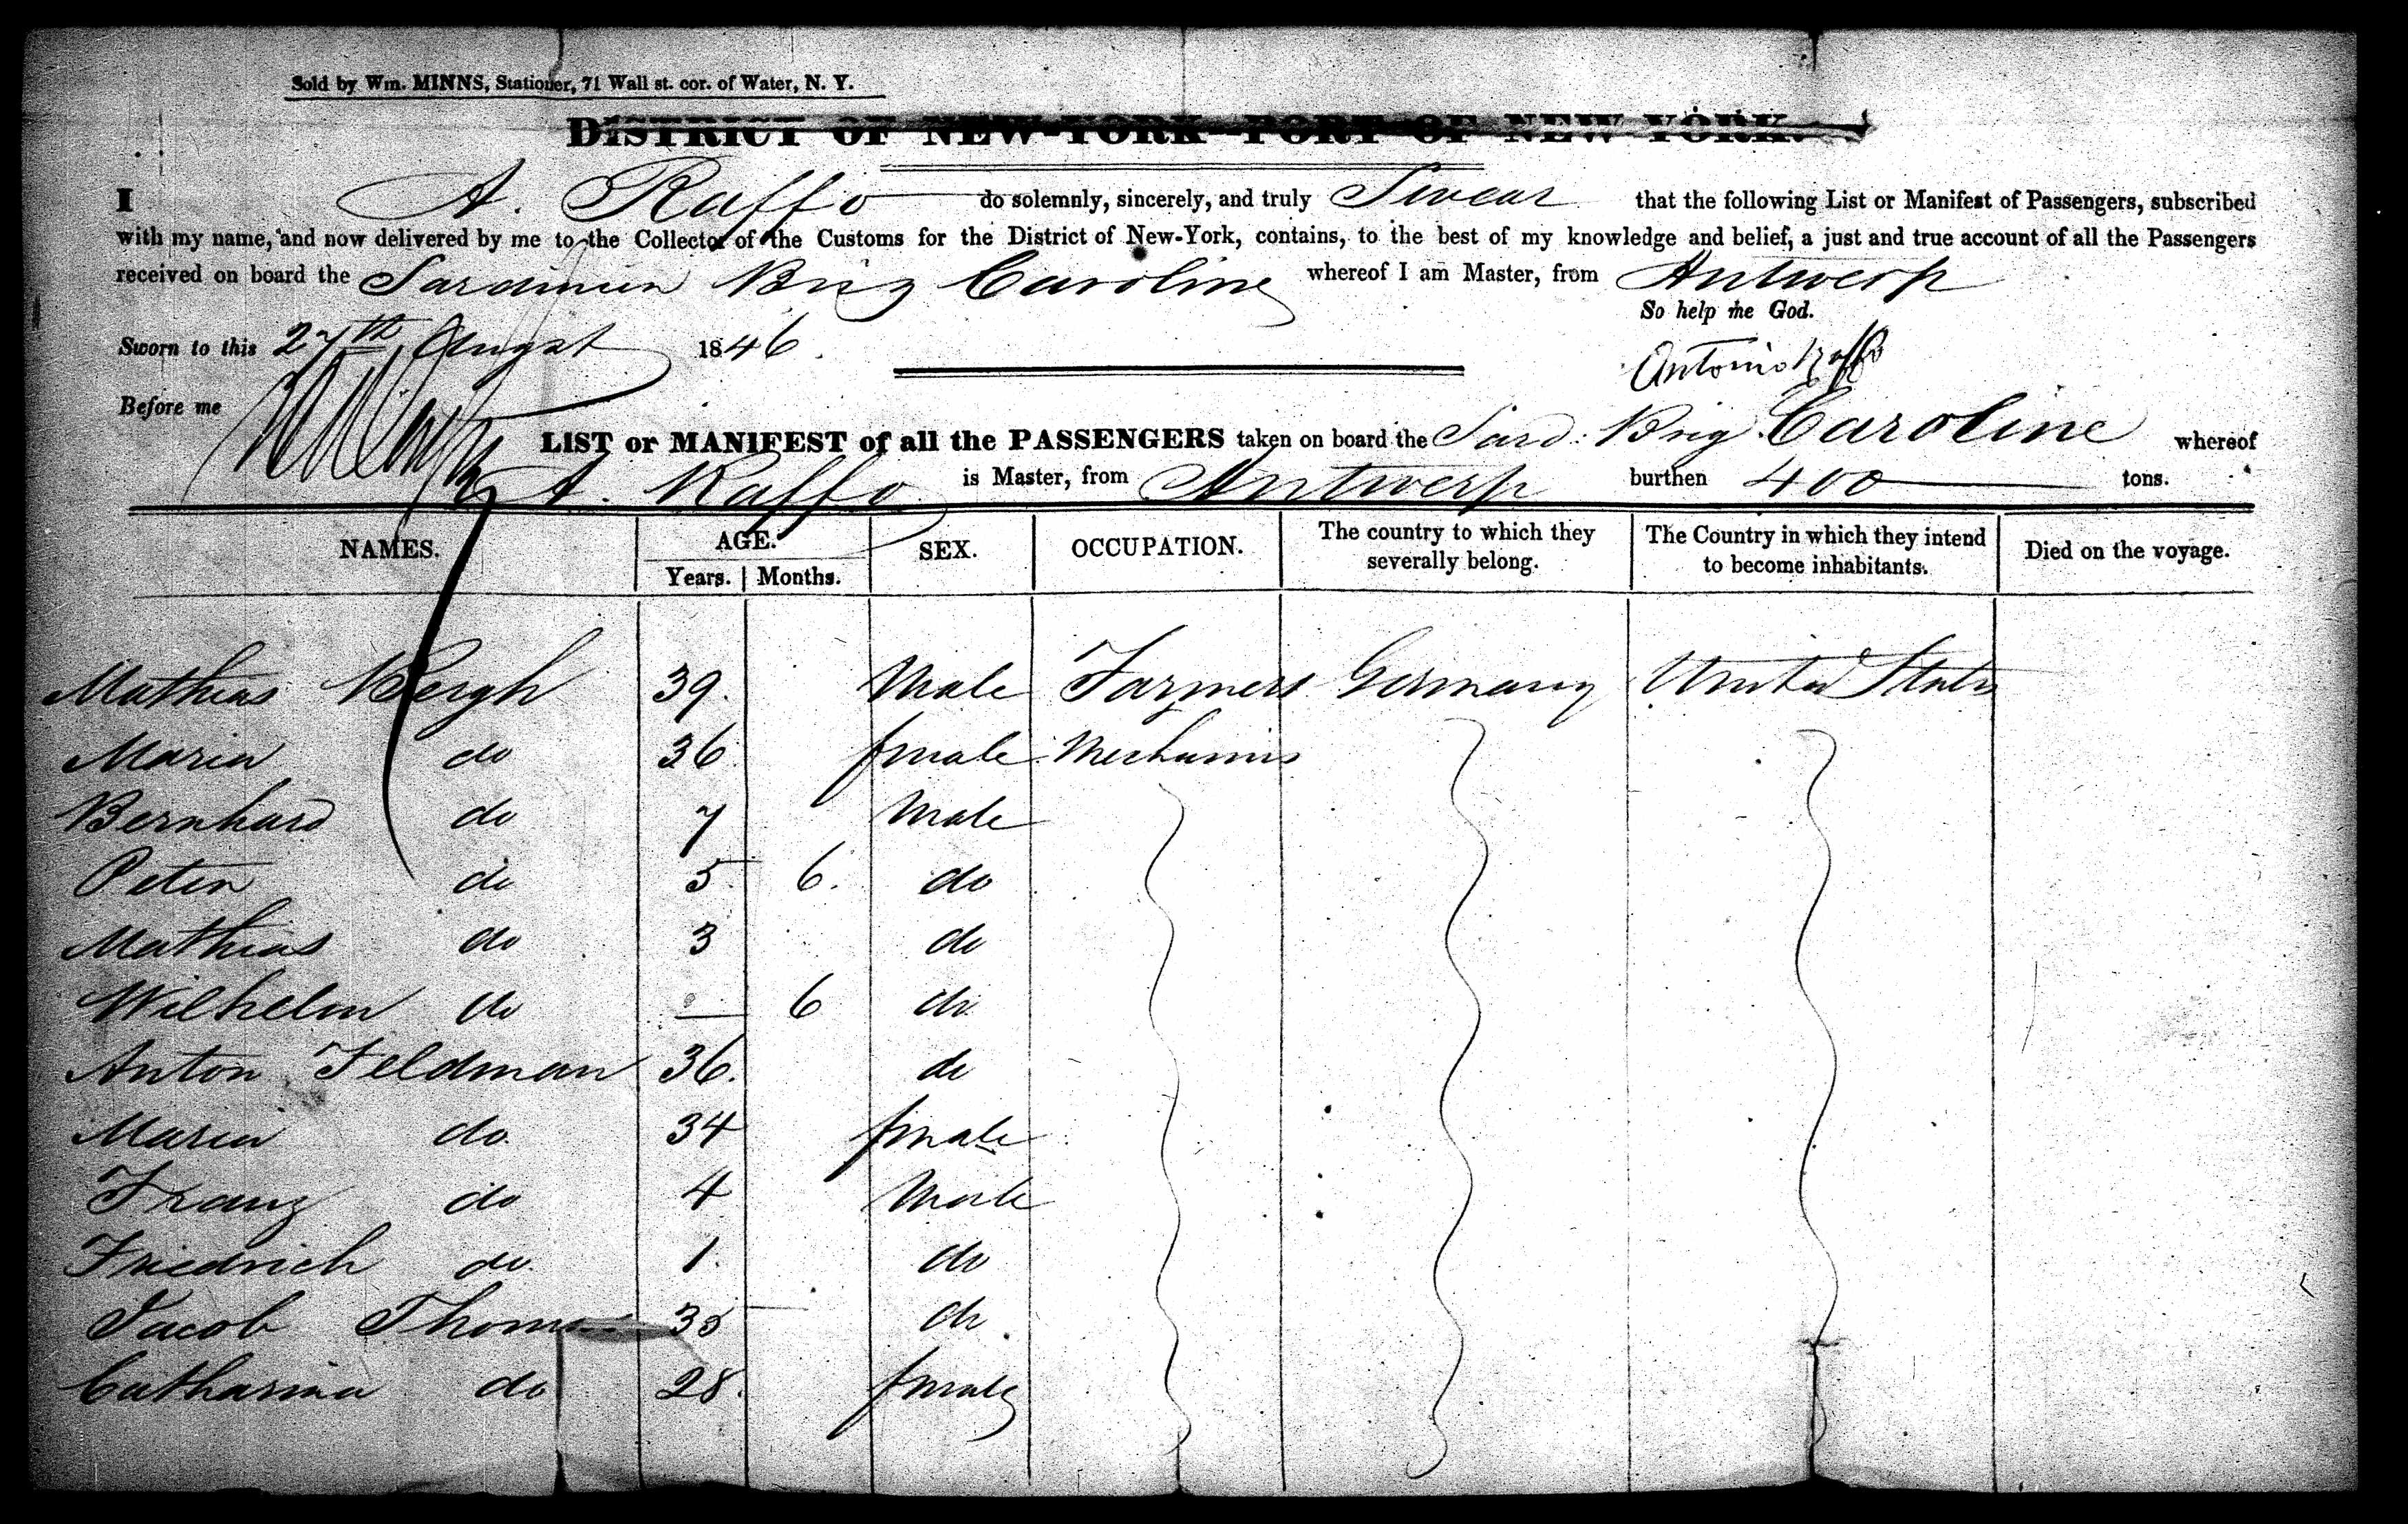 Sold by Wm. MINNS, Stationer, 71 Wall st. cor. of Water, N. Y.
DISTRICT OF NEW-YORK—PORT OF NEW YORK.
I A. Raffo do solemnly, sincerely, and truly Swear that the following List or Manifest of Passengers, subscribed
with my name, and now delivered by me to the Collector of the Customs for the District of New-York, contains, to the best of my knowledge and belief, a just and true account of all the Passengers
received on board the Sardinien Brig Caroline whereof I am Master, from Antwerp
So help me God.
Sworn to this 27th Augst 1846.
Antonio Raffo
Before me
LIST or MANIFEST of all the PASSENGERS taken on board the Sard: Brig Caroline whereof
A. Raffo is Master, from Antwerp burthen 400 tons.
NAMES. AGE. SEX. OCCUPATION. The country to which they severally belong. The Country in which they intend to become inhabitants. Died on the voyage.
Years. Months.
Mathias Bergh 39. Male Farmers Germany United States
Maria do 36 female Mechanics
Bernhard do 7 Male
Peter do 5 6. do
Mathias do 3 do
Wilhelm do — 6 do
Anton Feldman 36. do
Maria do 34 female
Franz do 4 Male
Friedrich do. 1. do
Jacob 35 do
Catharina do 28. female